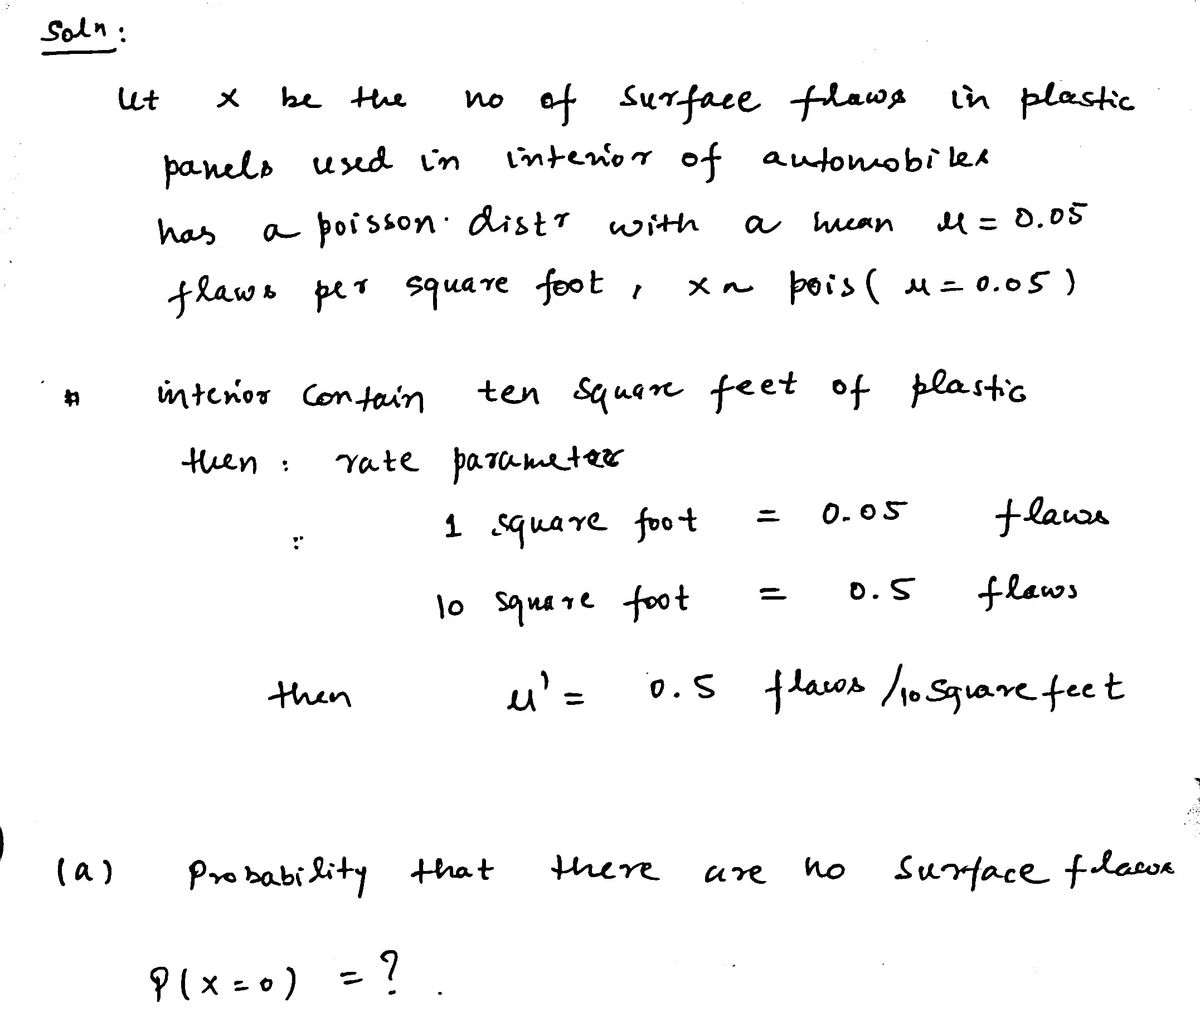 Soln :
Let x be the no of surface flaws in plastic
panels used in interior of automobiles
has a poisson. distr with a mean μ = 0.05
flaws per square foot , x ~ pois( μ = 0.05 )
# interior contain ten square feet of plastic
then : rate parameter
∵ 1 square foot = 0.05 flaws
10 square foot = 0.5 flaws
then μ' = 0.5 flaws /10 square feet
(a) Probability that there are no surface flaws
P(x = 0) = ? .